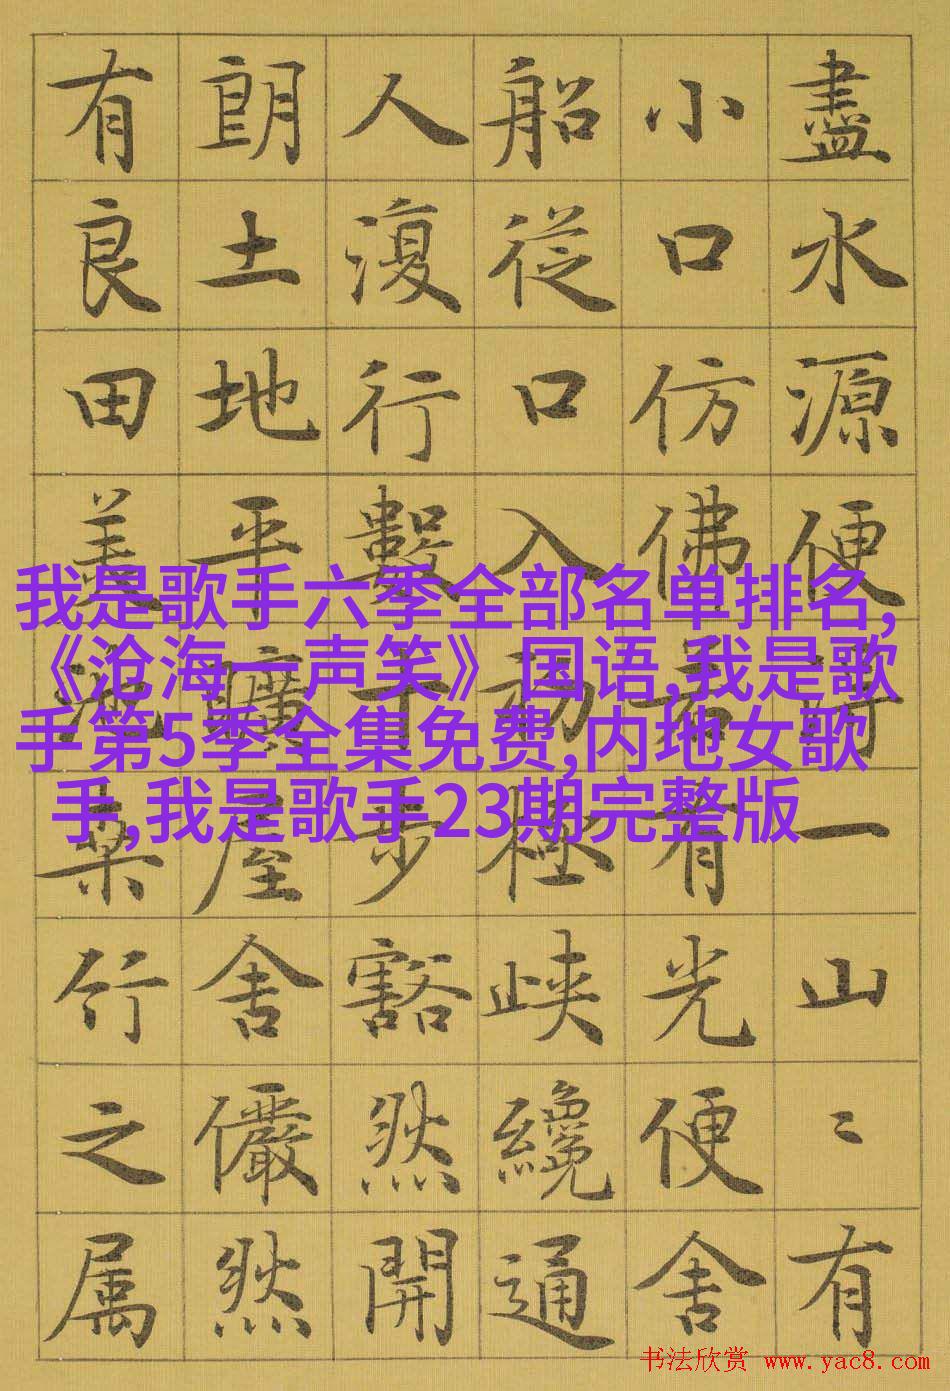 盡水源便得一山〻有
小口仿佛若有光便舍
船從口入初極峽纔通
人復行數十步豁然開
朗土地平曠屋舍儼然
有良田美池桑竹之属
我是歌手六季全部名单排名,
《沧海一声笑》国语,我是歌
手第5季全集免费,内地女歌
手,我是歌手23期完整版
书法欣赏 www.yac8.com